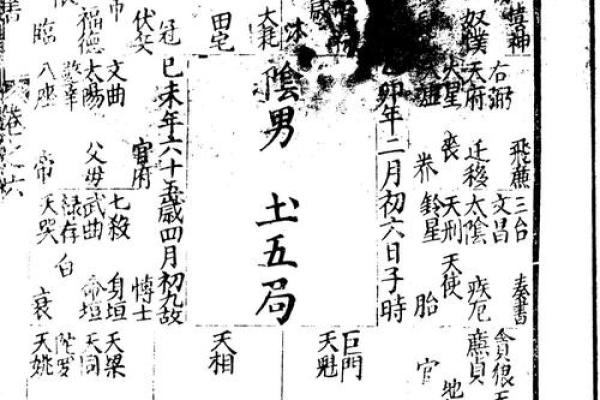 奴僕
右弼
天府
飛蕪
迁移
喪
养
三台
文昌
太陰
天刑
鈴星
奏書
疾厄
天使
胎
貪狼
廉貞
官
地
卯年二月初六日子時
陰男 土五局
已未年六十五歲四月初九故
巨門
天魁
天相
大耗
沐
田宅
冠
伏兵
福德
臨
文曲
太陽
八座
官府
父母
帝
七殺
武曲
祿存
天哭
博士
身垣
命垣
白
衰
天梁
天同
陀罗
天姚